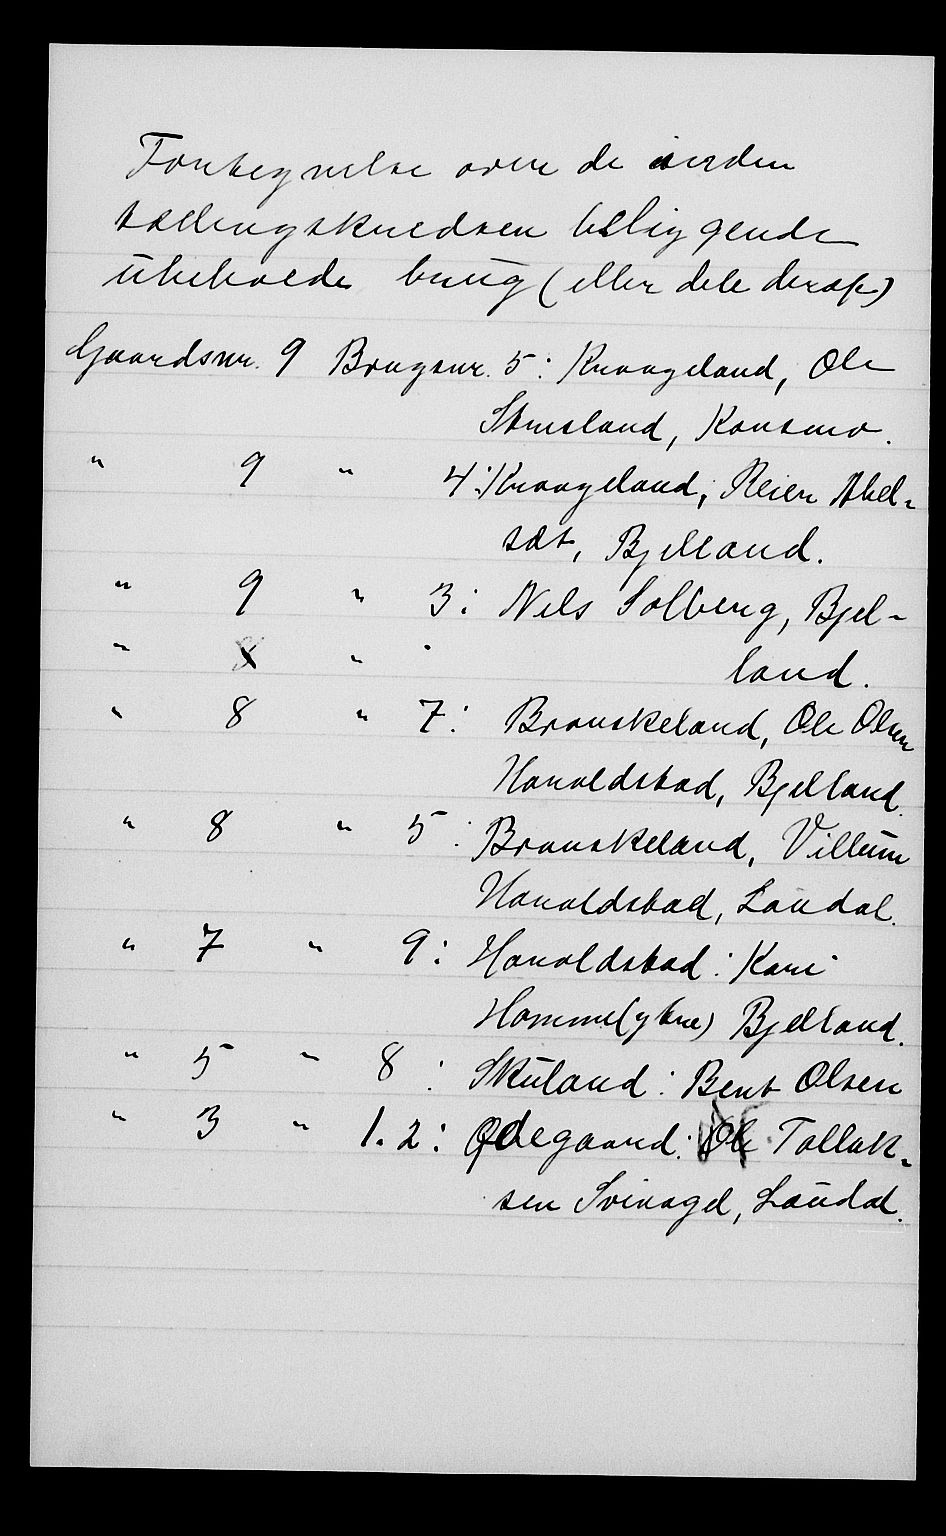 Fortegnelse over de inden
tællingskredsen beliggende
ubeboede brug (eller dele deraf)
Gaardsnr. 9 Brugsnr. 5: Kraageland, Ole
Stusland, Konsmo.
" 9 " 4: Kraageland, Reier Abel-
sæt, Bjelland.
" 9 " 3: Nils Solberg, Bjel-
" 8 " land.
" 8 " 7: Brouskeland, Ole Olsen
Haraldstad, Bjelland.
" 8 " 5: Brouskeland, Villum
Haraldstad, Laudal.
" 7 " 9: Haraldstad: Kari
Homme (ytre) Bjelland.
" 5 " 8: Skuland: Bent Olsen
" 3 " 1.2: Ødegaard: Ole Tallak-
sen Svinagel, Laudal.